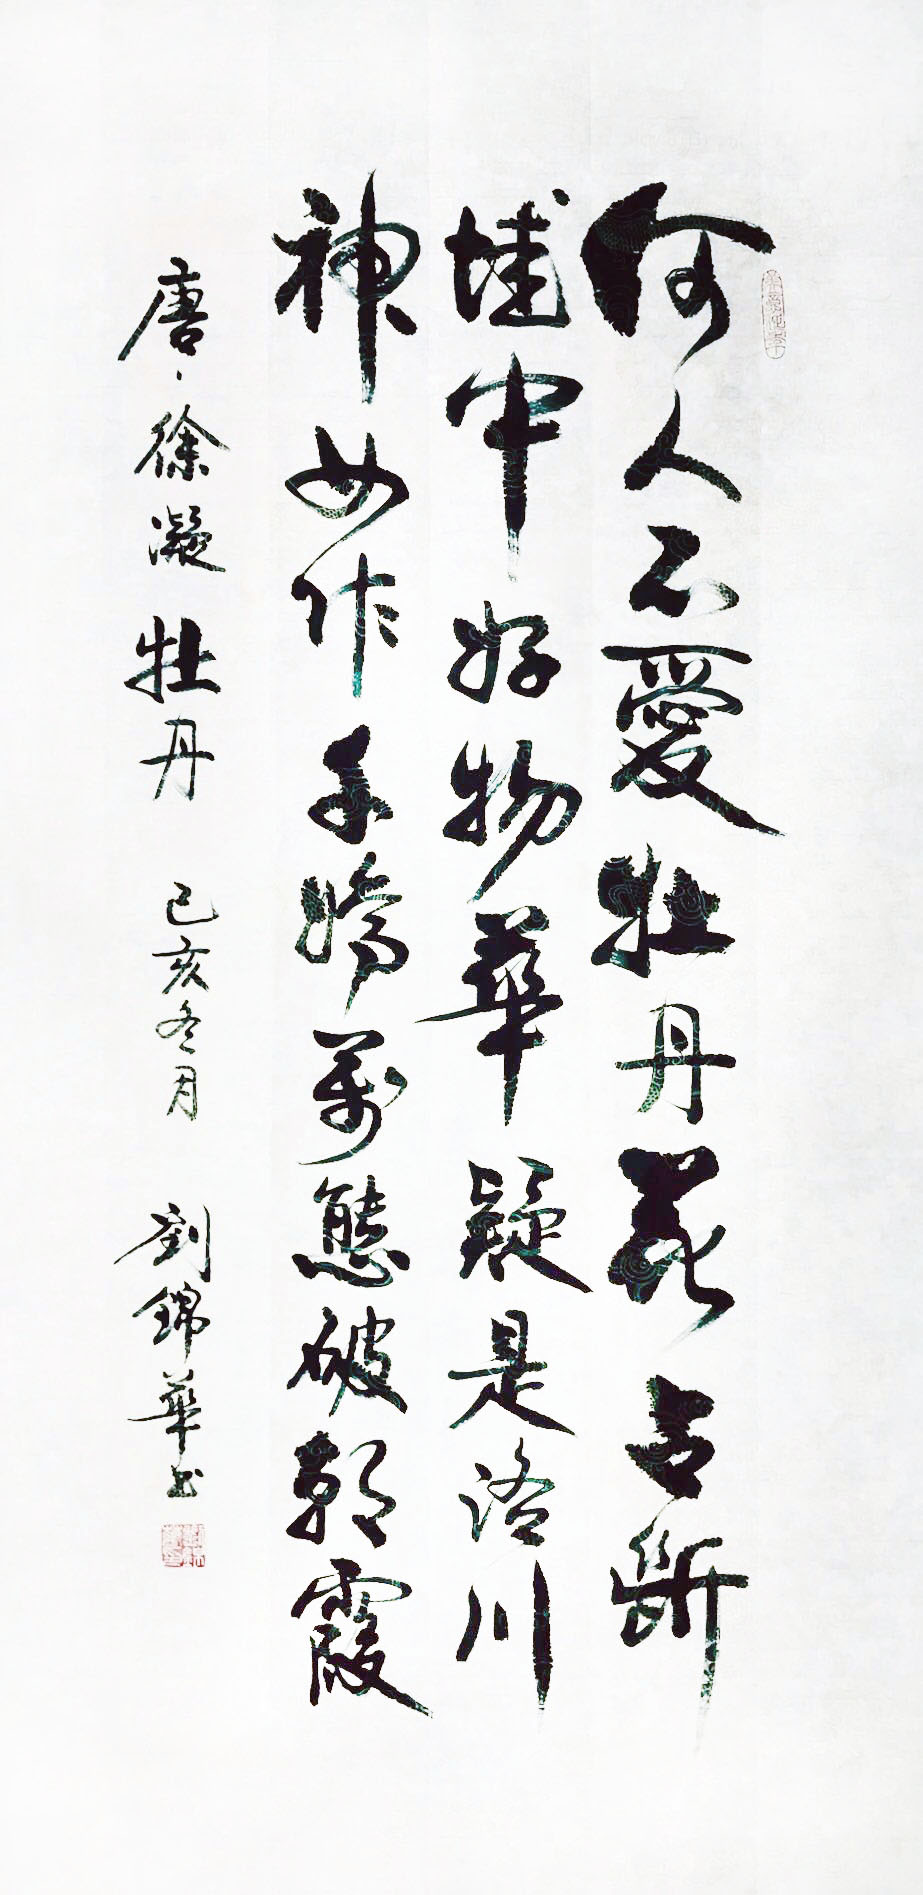 何人不愛牡丹花占斷
城中好物華疑是洛川
神女作千嬌萬態破朝霞
唐、徐凝牡丹 己亥冬月 劉錦華书